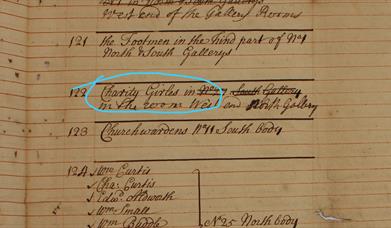 West end of the Gallery Rooms
121 the Footmen in the hind part of No 1
North & South Gallerys
122 Charity Girles in South Gallery
in the room West end North Gallery
123 Churchwardens No 1 South body
124 Wm Curtis
Cha: Curtis
Edwd Aldworth
Wm Small
Wm Biddle No 25 North body